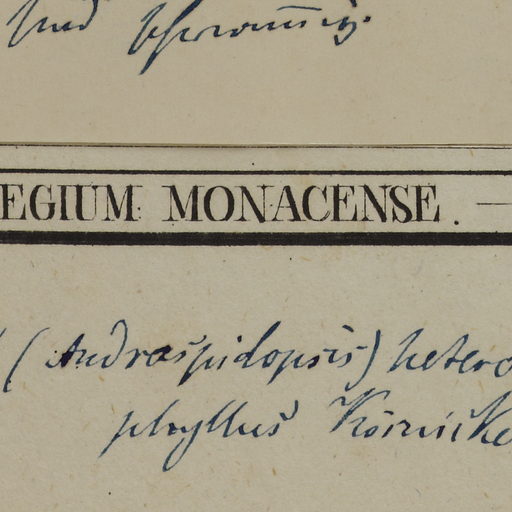 und
EGIUM MONACENSE. —
(Andraspidopsis) hetero
phyllus Körnicke